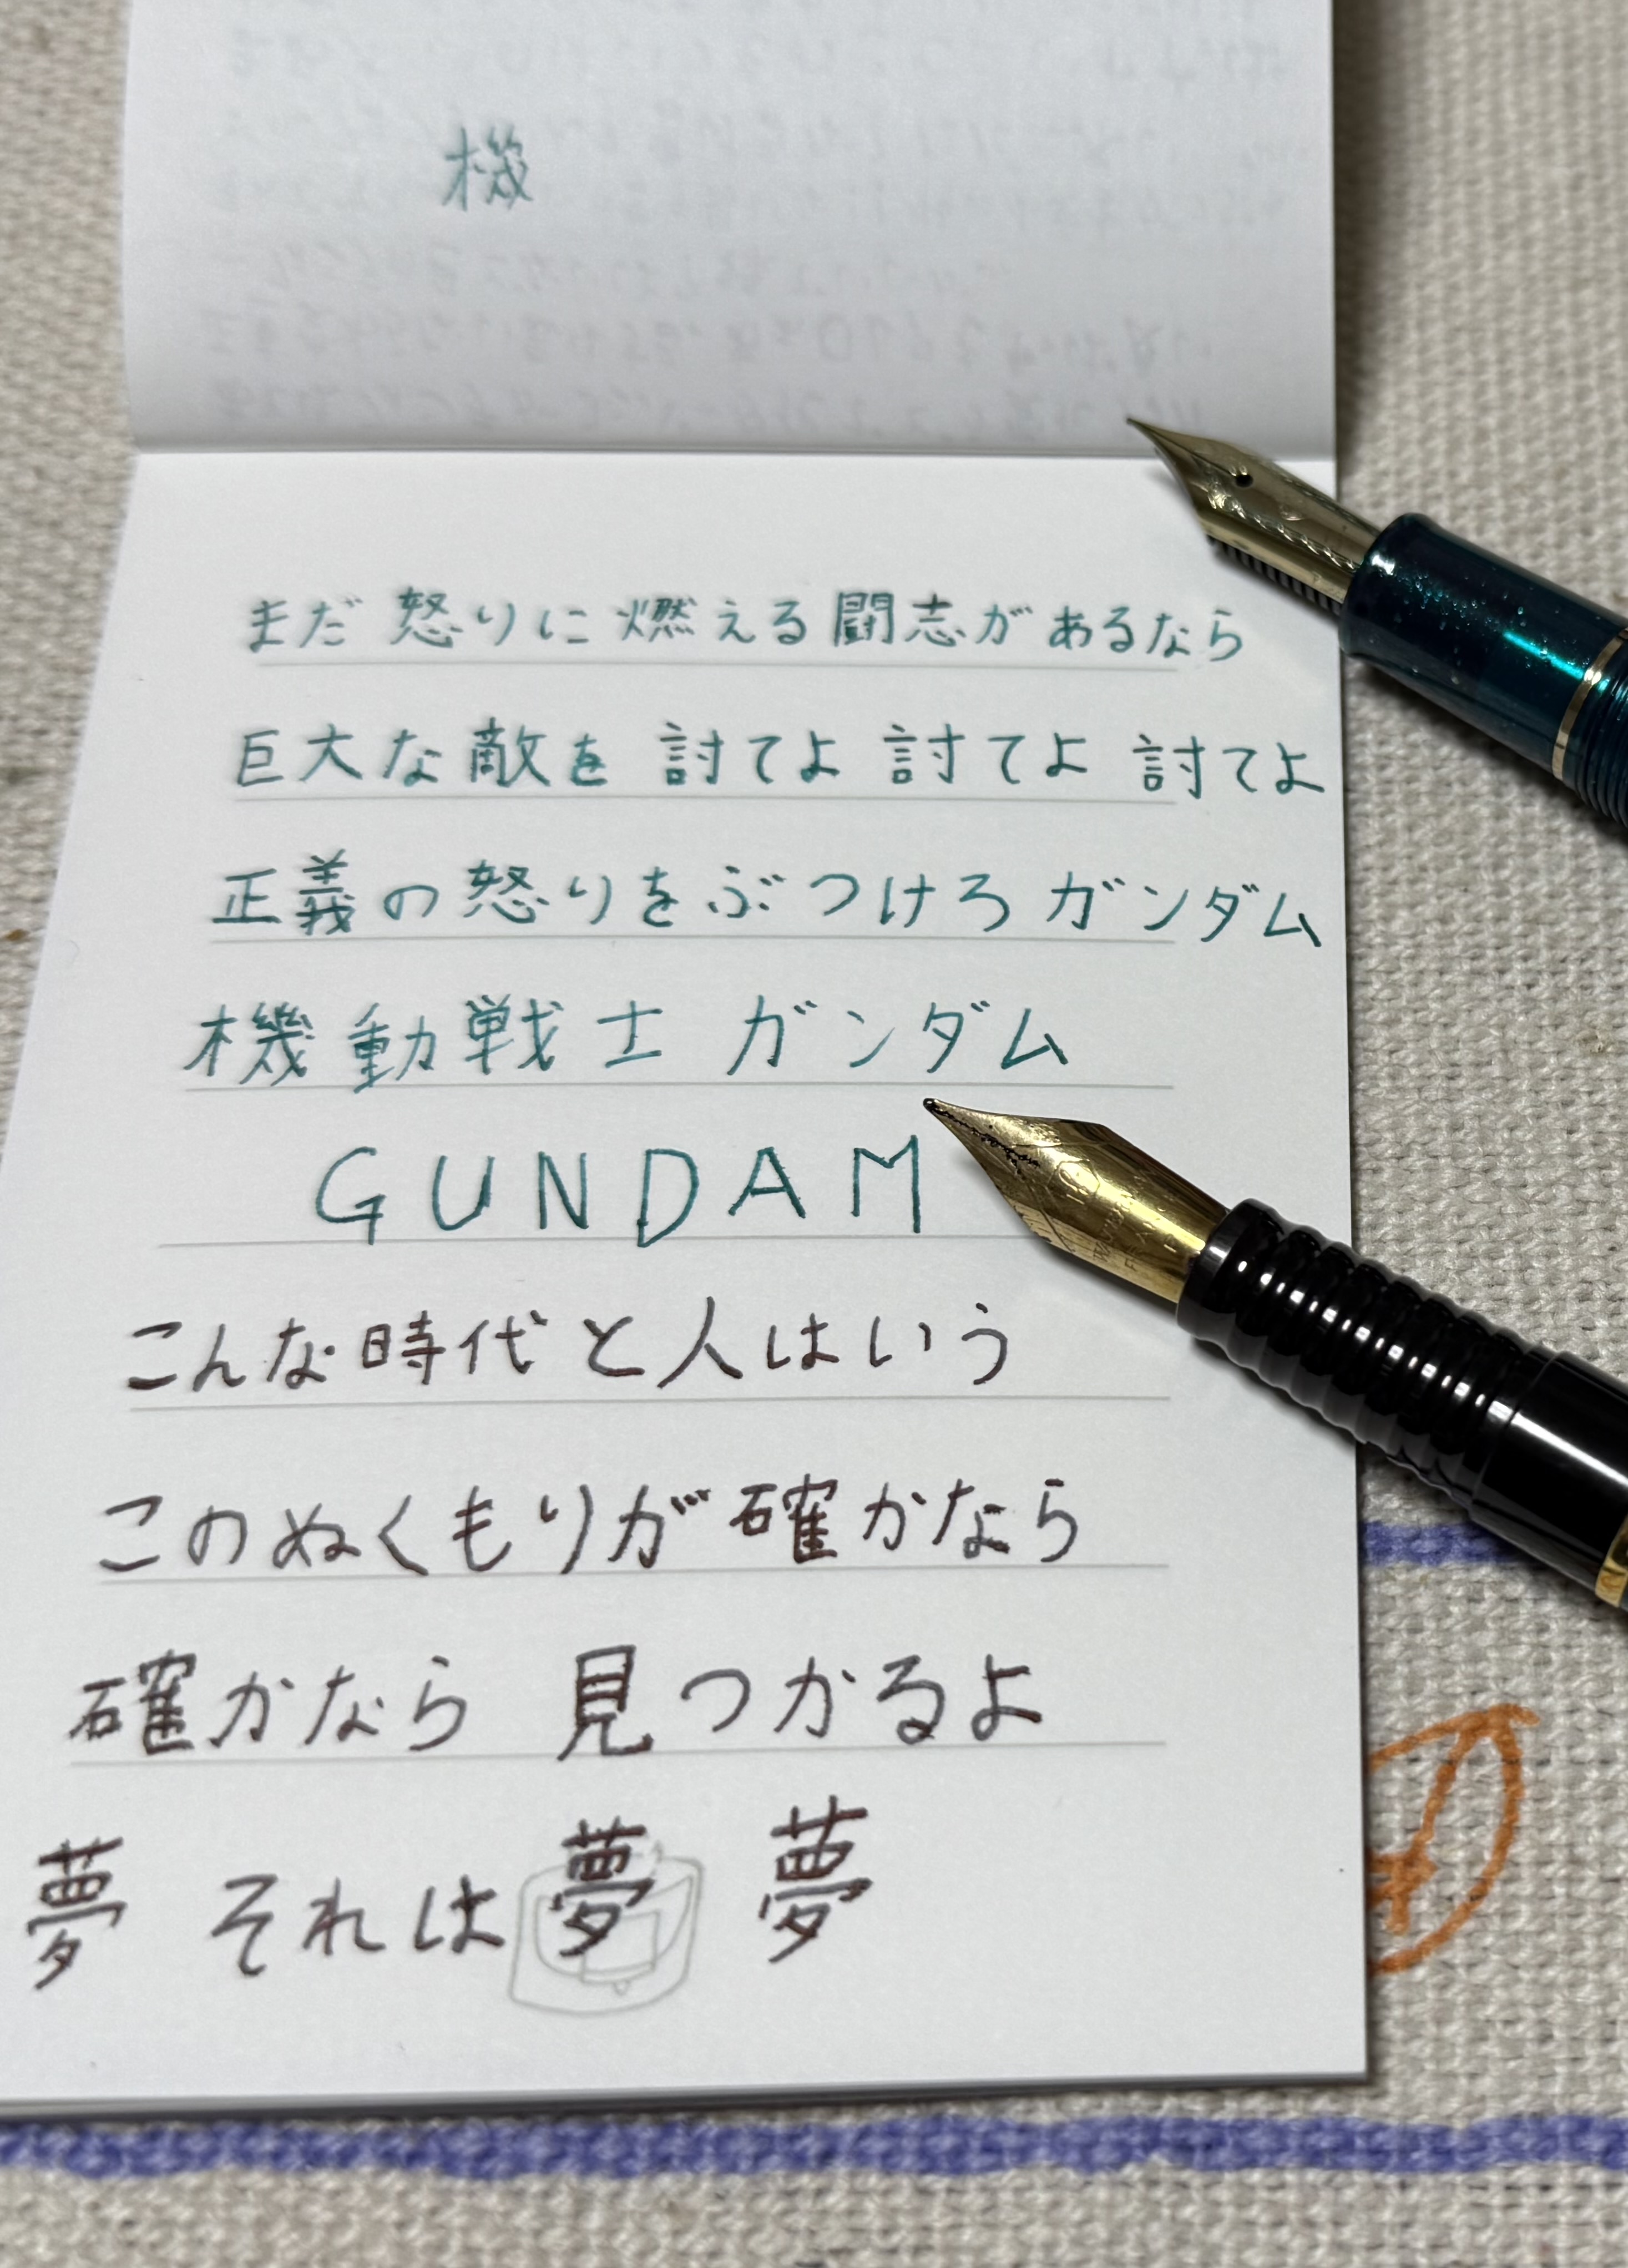 機
まだ 怒りに 燃える 闘志が あるなら
巨大な 敵を 討てよ 討てよ 討てよ
正義の 怒りを ぶつけろ ガンダム
機動戦士 ガンダム
GUNDAM
こんな 時代と 人はいう
このぬくもりが 確かなら
確かなら 見つかるよ
夢 それは 夢 夢